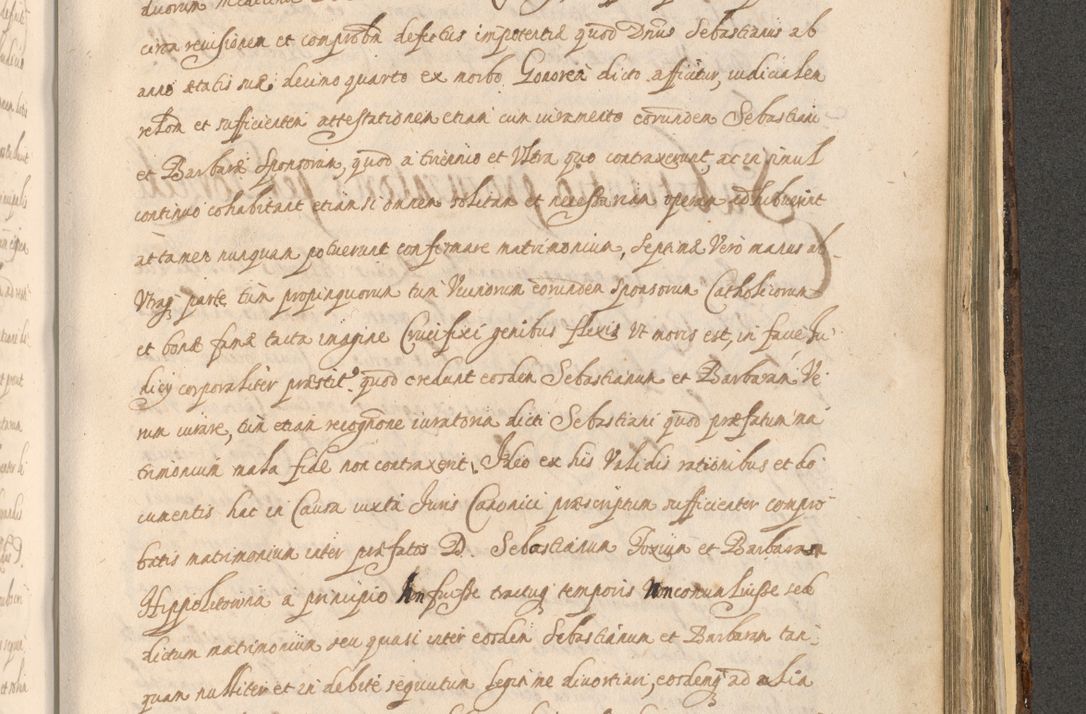 duorum medicinæ
circa reuisionem et comprobãm defectus impotentiæ quod Dnus Sebastianus ab
anno ætatis suæ decimo quarto ex morbo Gonorea dicto afficitur, iudicialem
relõem et sufficientem attestationem etiam cum iuramento eorundem Sebastiani
et Barbaræ Sponsorum, quod a triennio et Vltra quo contraxerunt, ac in simul
continuo cohabitant etiamsi omnem solitam et necessariam operam adhibuerint
attamen nunquam potuerunt consummare matrimonium, Septimæ Vero manus ab
Vtraq parte tùm propinquorum tùm Vicinorum eorundem Sponsorum Catholicorum
et bonæ famæ tacta imagine Crucifixi genibus flexis Vt moris est, in facie Ju
dicij corporaliter præstit. quod credunt eosdem Sebastianum et Barbaram Ve
rum iurare, tùm etiam recognõne iuratoria dicti Sebastiani quod præfatum ma
trimonium mala fide non contraxerit, Ideo ex his Validis rationibus et do
cumentis hac in Causa iuxta Juris Canonici præscriptum sufficienter compro
batis matrimonium inter præfatos D. Sebastianum Toxium et Barbaram
Hippolitowna a principio Non fuisse tractuq temporis Non conualuisse sed
dictum matrimonium seu quasi inter eosdem Sebastianum et Barbaram tan
quam nulliter et indebite sequutum legitime diuortiari, eosdemq ad alia